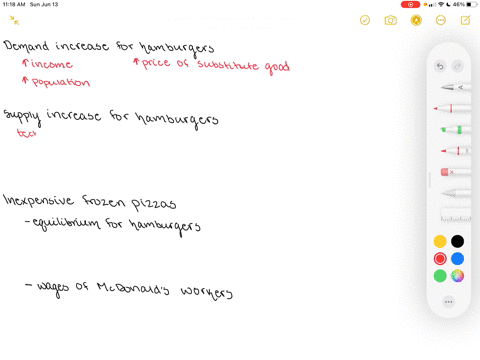 11:18 AM Sun Jun 13
46%
Demand increase for hamburgers
↑ income ↑ price of substitute good
↑ population
Supply increase for hamburgers
tec
Inexpensive frozen pizzas
- equilibrium for hamburgers
- wages of McDonald's workers